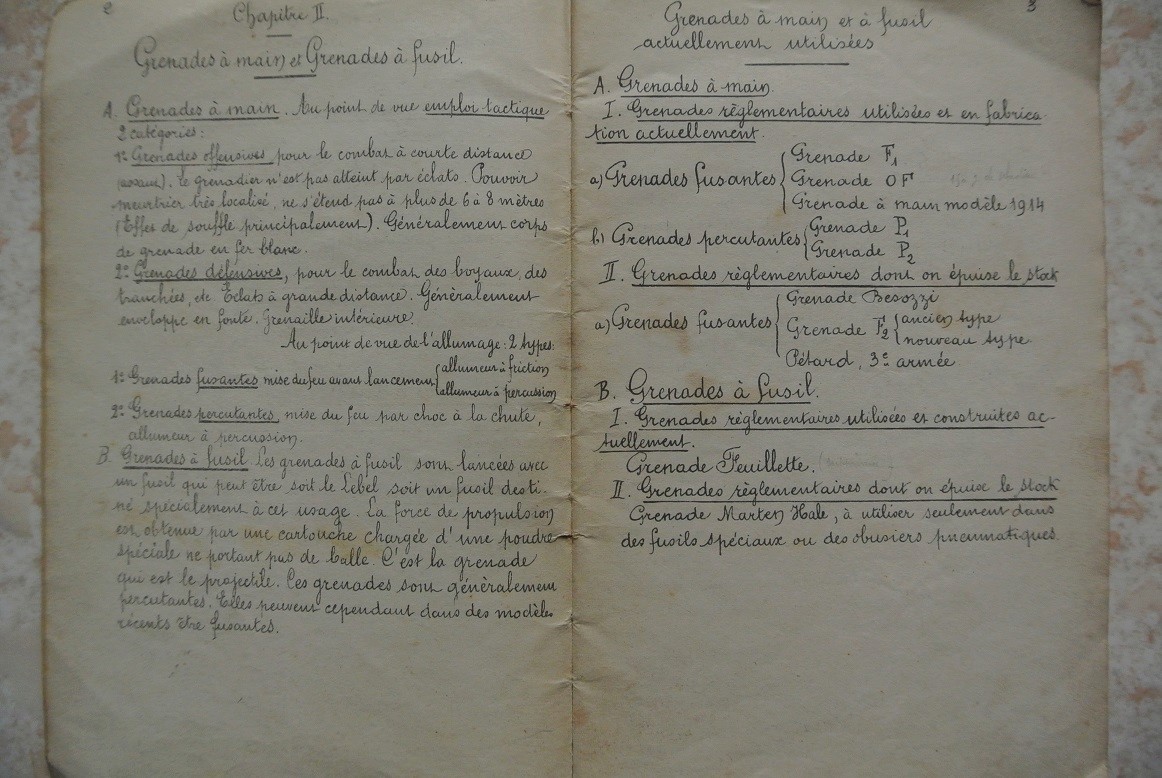 2
Chapitre II.
Grenades à main et Grenades à fusil.
A. Grenades à main. Au point de vue emploi tactique
2 catégories:
1º Grenades offensives pour le combat à courte distance
(assaut). Le grenadier n'est pas atteint par éclats. Pouvoir
meurtrier très localisé, ne s'étend pas à plus de 6 à 8 mètres
(Effet de souffle principalement). Généralement corps
de grenade en fer blanc.
2º Grenades défensives, pour le combat des boyaux, des
tranchées, etc. Éclats à grande distance. Généralement
enveloppe en fonte. Grenaille intérieure.
Au point de vue de l'allumage: 2 types:
1º Grenades fusantes mise du feu avant lancement { allumeur à friction
allumeur à percussion
2º Grenades percutantes, mise du feu par choc à la chute,
allumeur à percussion.
B. Grenades à fusil Les grenades à fusil sont lancées avec
un fusil qui peut être soit le Lebel soit un fusil desti-
né spécialement à cet usage. La force de propulsion
est obtenue par une cartouche chargée d'une poudre
spéciale ne portant pas de balle. C'est la grenade
qui est le projectile. Ces grenades sont généralement
percutantes. Elles peuvent cependant dans des modèles
récents être fusantes.
3
Grenades à main et à fusil
actuellement utilisées
A. Grenades à main.
I. Grenades règlementaires utilisées et en fabrica-
tion actuellement.
a) Grenades fusantes { Grenade F1
Grenade OF
Grenade à main modèle 1914
b) Grenades percutantes { Grenade P1
Grenade P2
II. Grenades règlementaires dont on épuise le stock
a) Grenades fusantes { Grenade Besozzi
Grenade F2 { ancien type
nouveau type
Pétard, 3e armée
B. Grenades à fusil.
I. Grenades règlementaires utilisées et construites ac-
tuellement.
Grenade Feuillette.
II. Grenades règlementaires dont on épuise le stock
Grenade Marten Hale, à utiliser seulement dans
des fusils spéciaux ou des obusiers pneumatiques.